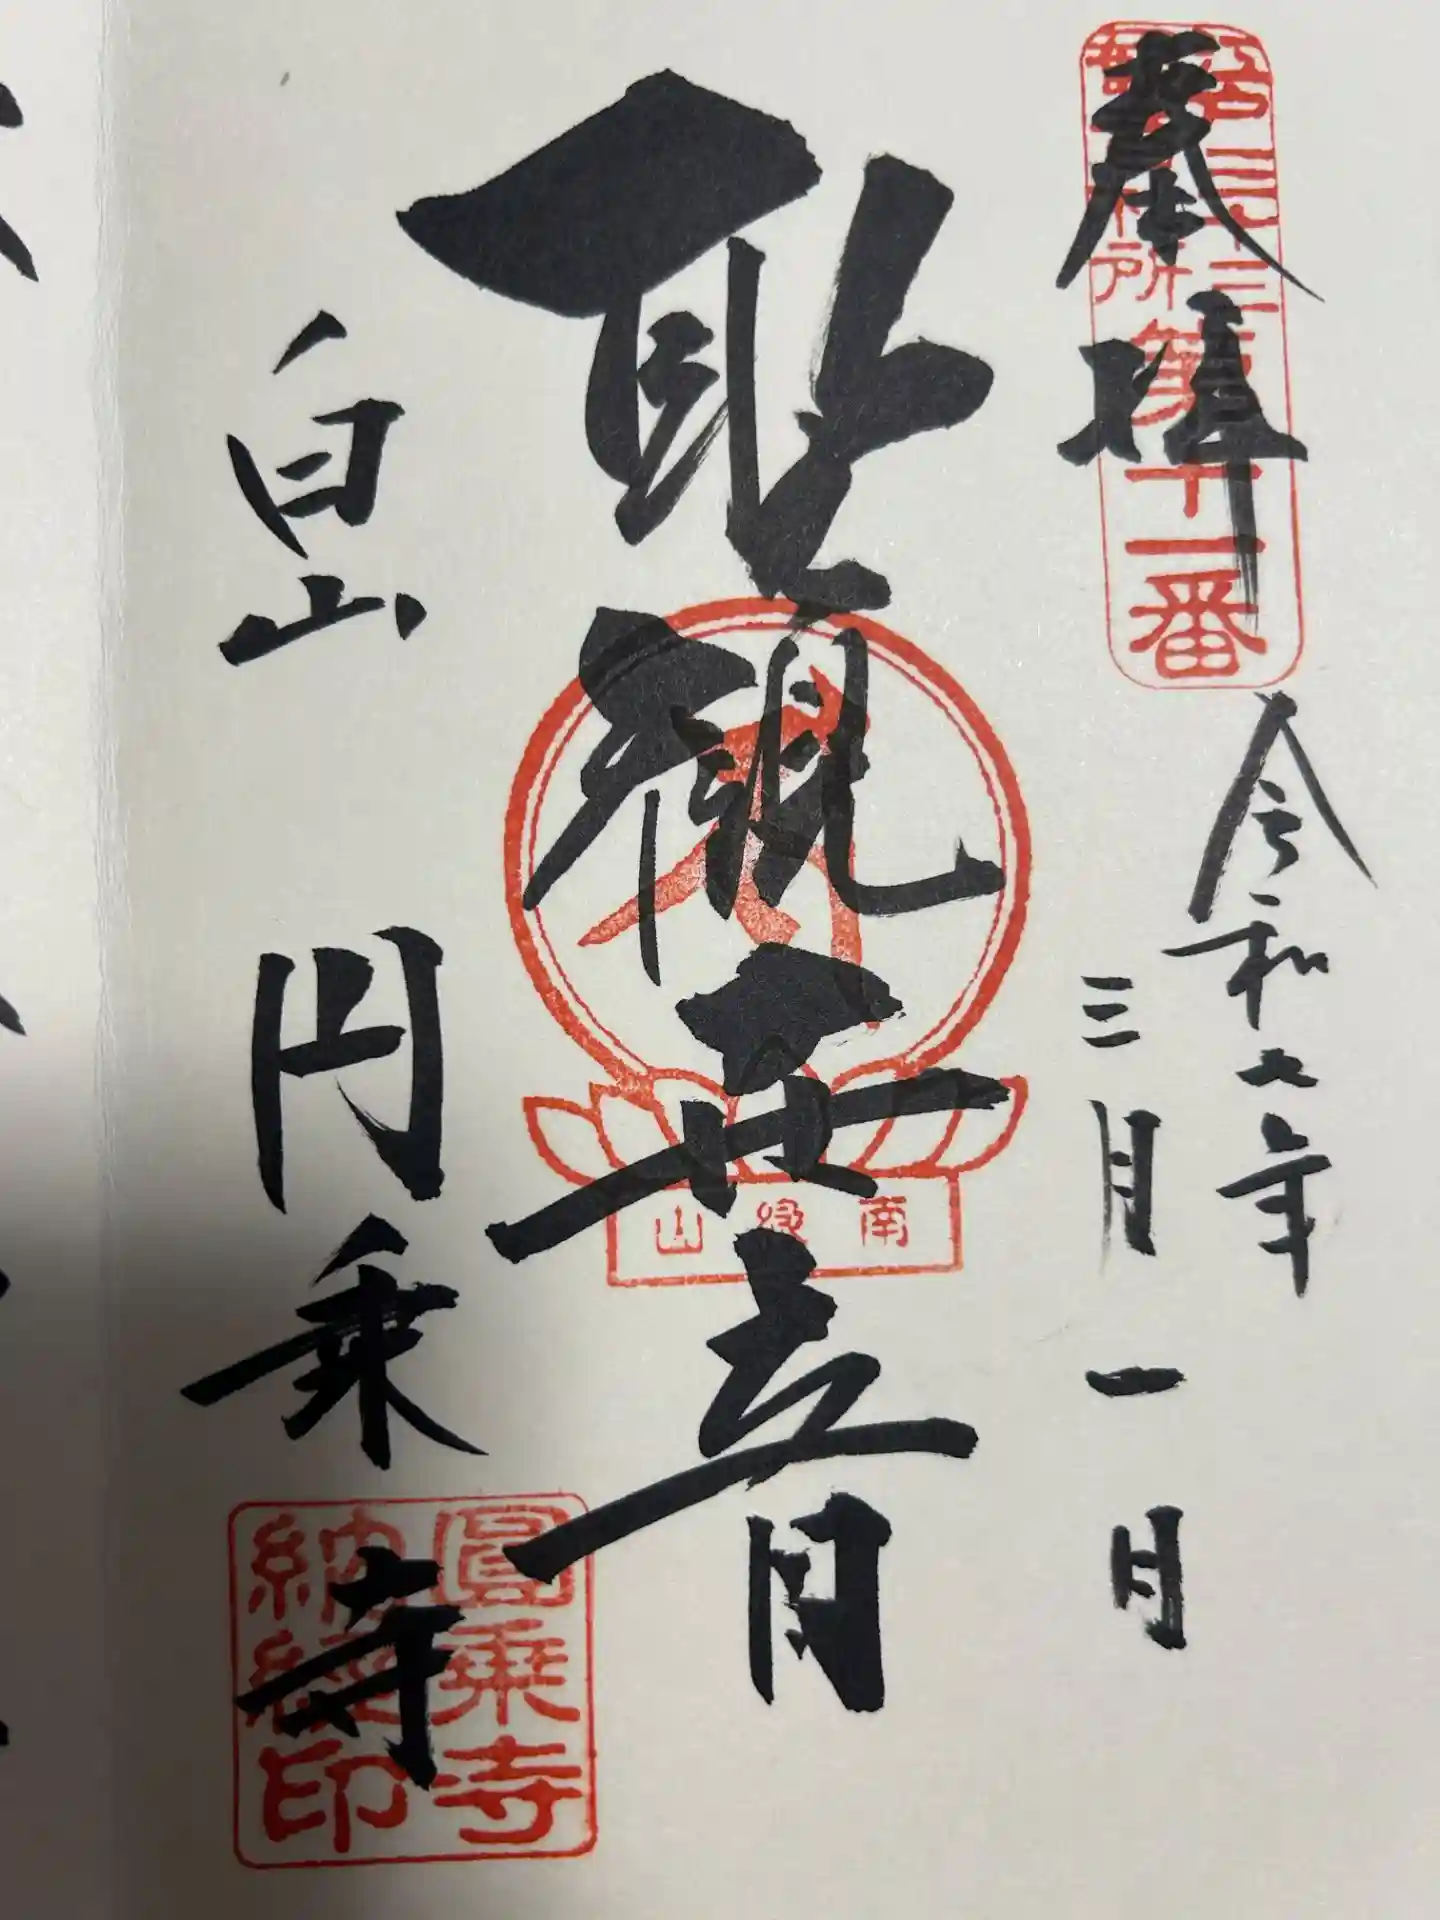 奉拝
江戸三十三観音札所第十一番
令和七年
三月一日
聖観世音
南緑山
白山
円乗寺
圓乗寺
納経印